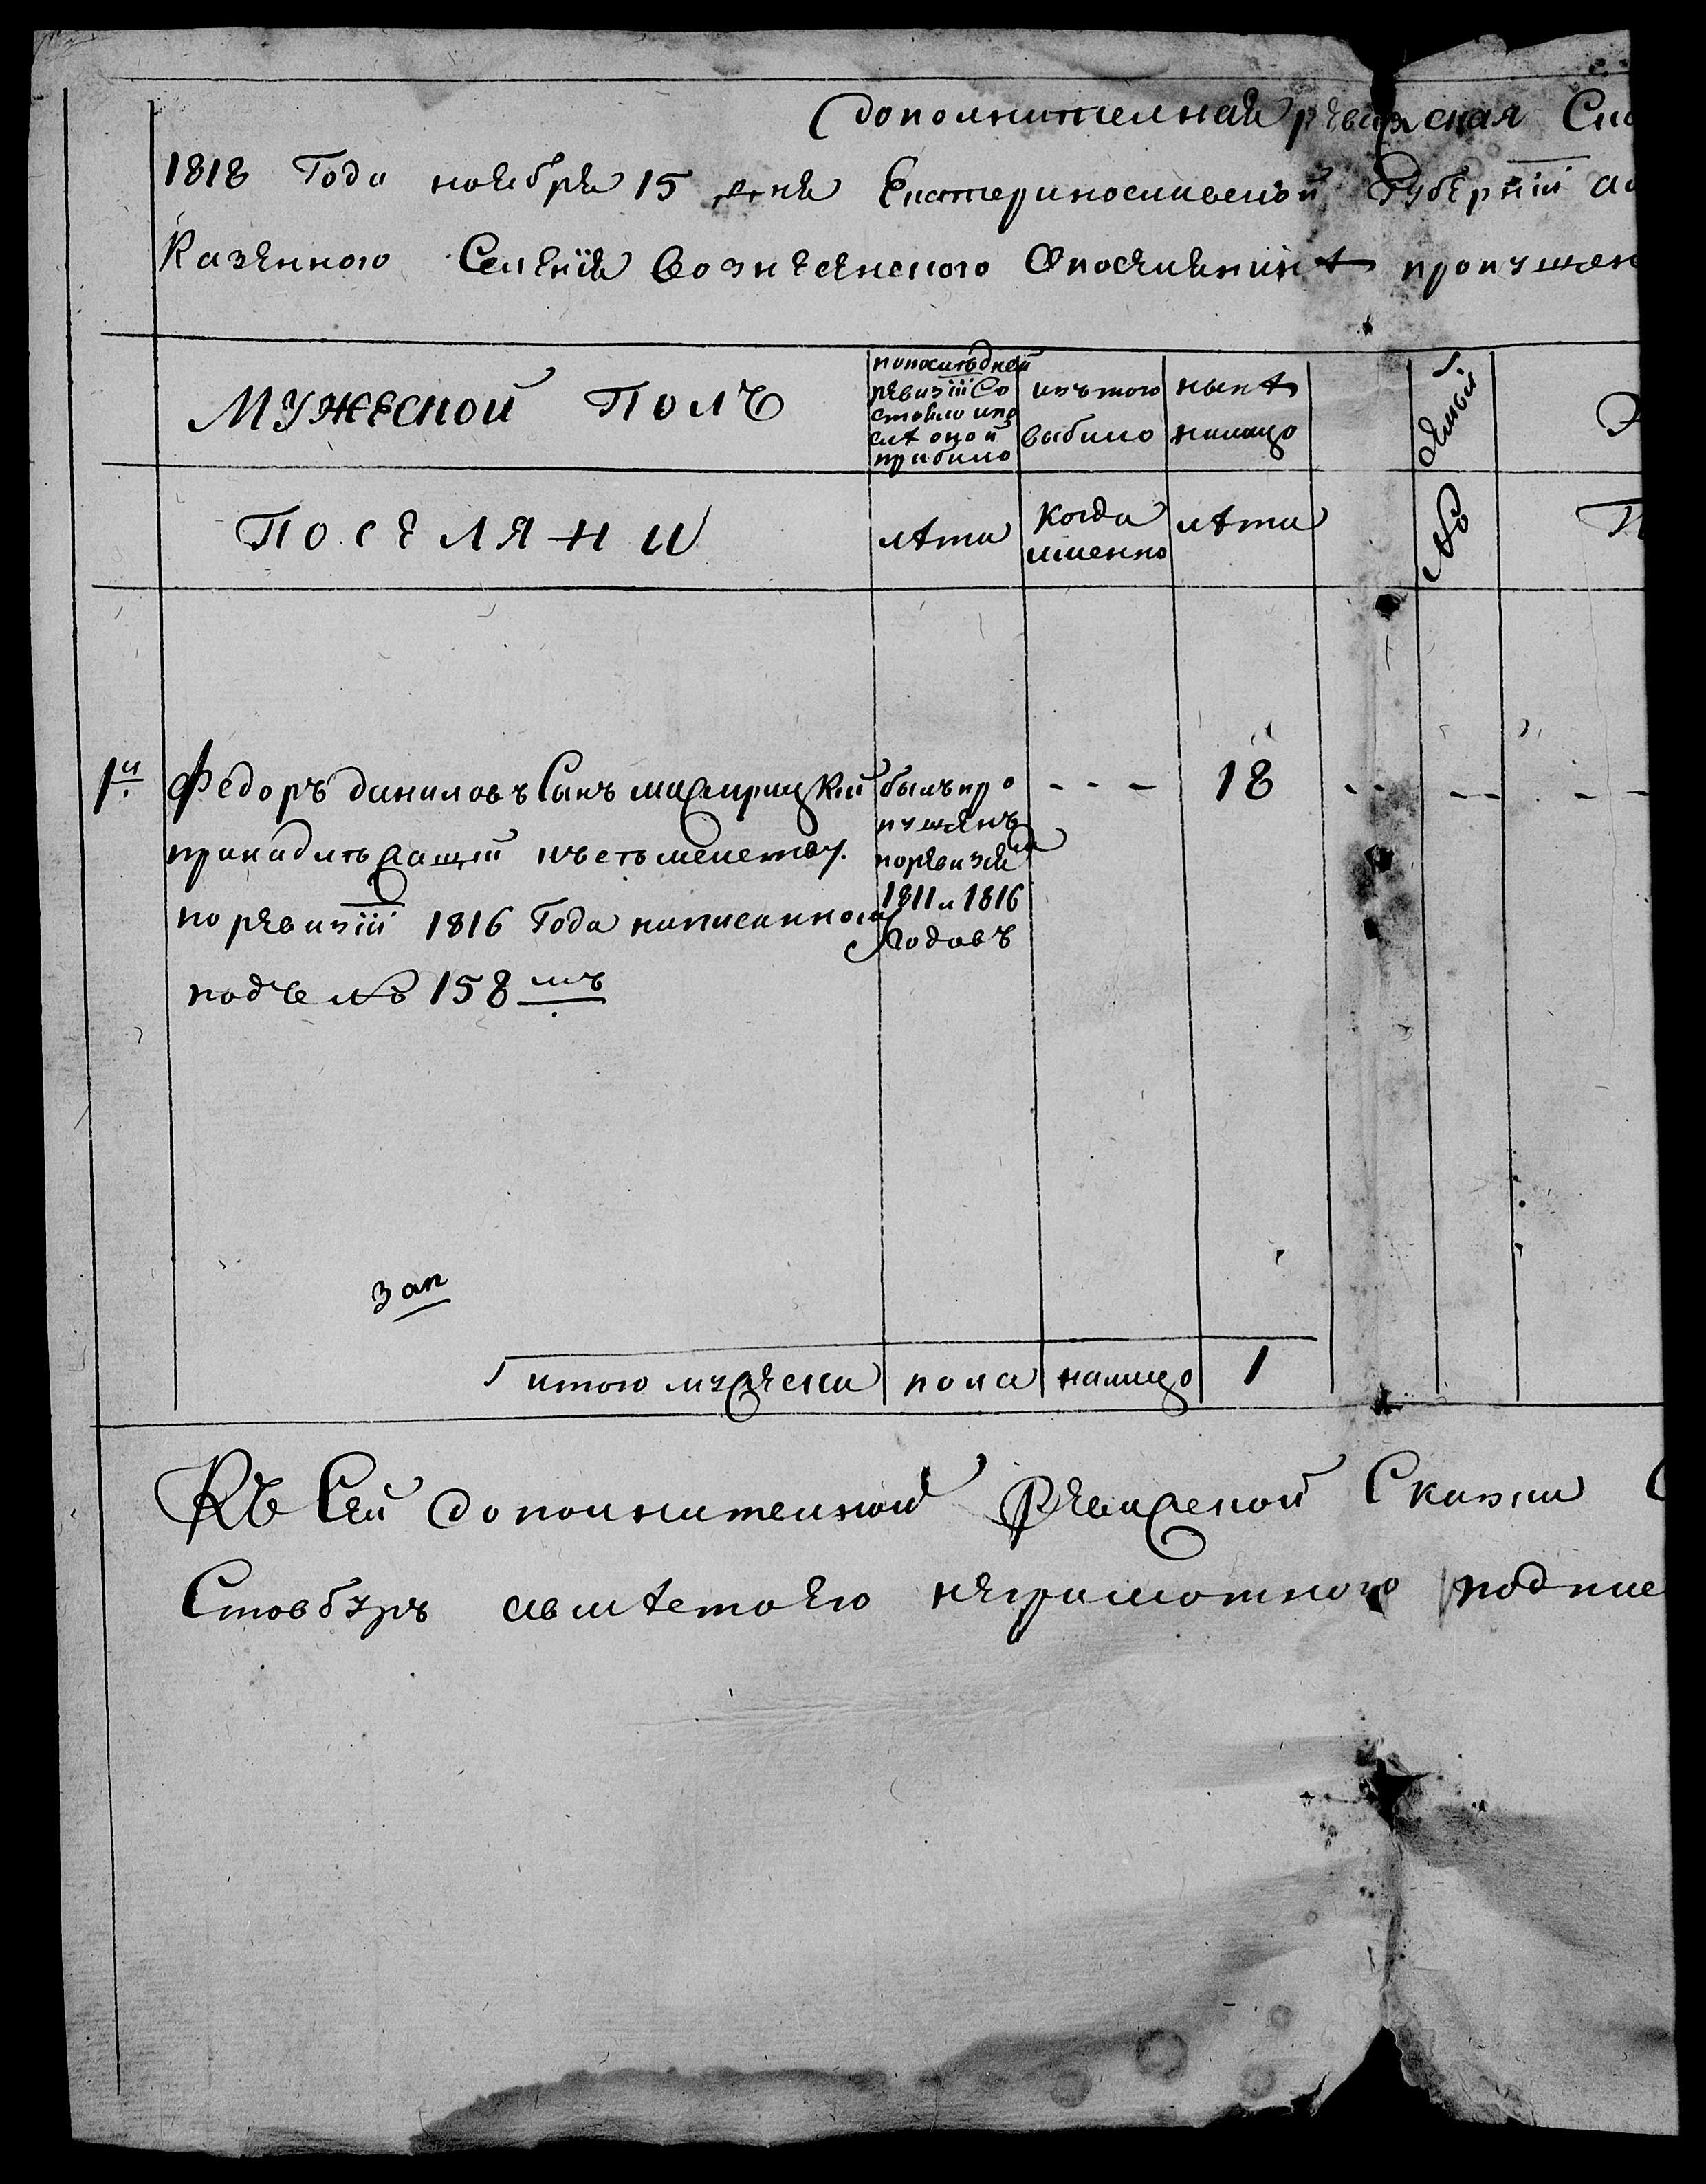 дополнителная ревижская Ска
1818 Года ноября 15 дня Екатеринославской Губернїи
Казенного Селенїя Вознесенского Опоселянинѣ пропущен
МУЖЕСКОЙ ПОЛЪ
попоследней ревизіи Состояло ипослѣ оной прибило
изътого выбило
нынѣ налицо
ПОСЕЛЯНИ
лѣта
Когда именно
лѣта
№
1й
Федоръ даниловъ Сынъ
принадлежащій къ
по ревизіи 1816 Года написанного
подъ № 158мъ
былъ про
пущенъ
поревизия
1811 и 1816
Годовъ
- - -
18
зап
итого мужеска пола налицо 1
Къ Сей дополнителной Ревижской Скаски
Стовбуръ авместоего неграмотного подпис